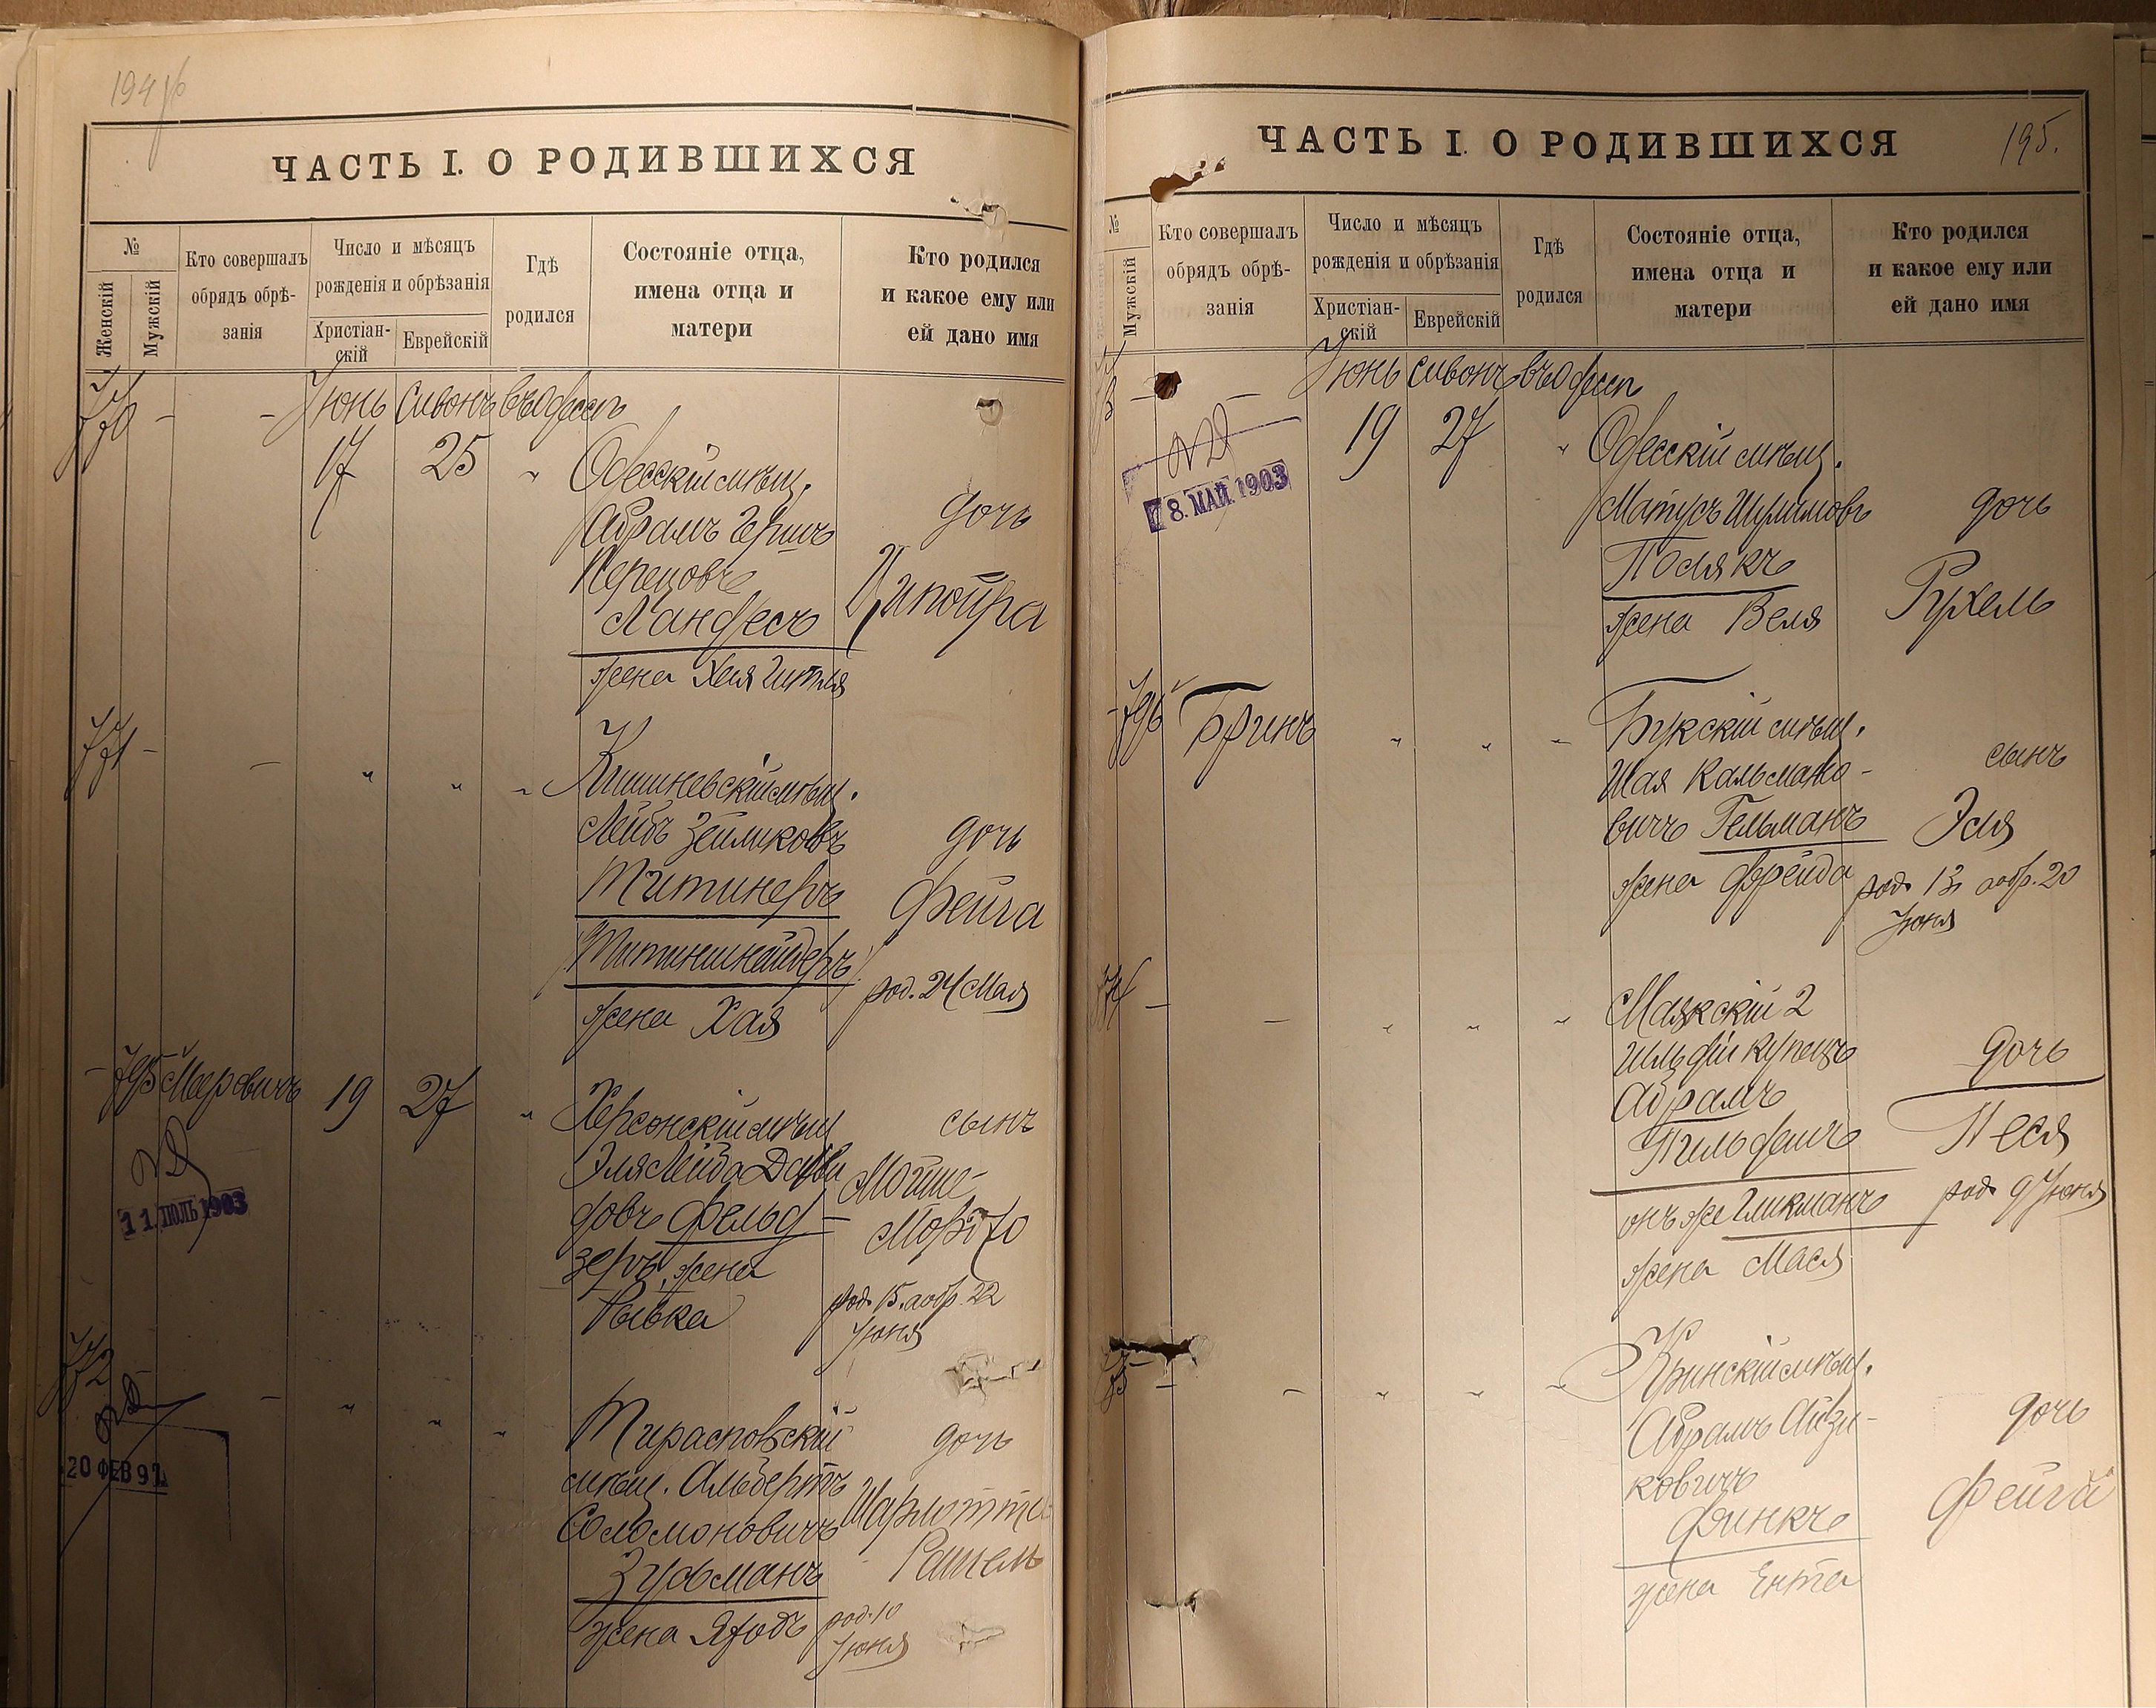 194 об
ЧАСТЬ I. О РОДИВШИХСЯ
№
Женскій
Мужскій
Кто совершалъ
обрядъ обрѣ-
занія
Число и мѣсяцъ
рожденія и обрѣзанія
Христіан-
скій
Еврейскій
Гдѣ
родился
Состояніе отца,
имена отца и
матери
Кто родился
и какое ему или
ей дано имя
770 - - Іюнь Сивонъ въ Одессѣ
17 25 " Одесскій мѣщ.
Абрамъ Гершъ дочь
Перецовъ
Ландесъ Ципойра
жена Хая Гитля
771 - - " " " Кишиневскій мѣщ.
Лейбъ Зейликовъ дочь
Титинеръ Фейга
(Титиншнейдеръ)
жена Хая род. 24 Мая
- 795 Меровичъ 19 27 " Херсонскій мѣщ. сынъ
Эля Лейба Дави
довъ Фельд- Мойше-
зеръ, жена Морітъ
Рывка род. 15. а обр. 22
Іюня
11. ІЮЛЬ 1903
772 - " " " Тираспольскій дочь
мѣщ. Альбертъ
Соломоновичъ Шарлотта
Зусьманъ Рашель
жена Ягодъ род. 10
Іюня
20 ФЕВ 97
195.
ЧАСТЬ I. О РОДИВШИХСЯ
№
Мужскій
Кто совершалъ
обрядъ обрѣ-
занія
Число и мѣсяцъ
рожденія и обрѣзанія
Христіан-
скій
Еврейскій
Гдѣ
родился
Состояніе отца,
имена отца и
матери
Кто родился
и какое ему или
ей дано имя
- - Іюнь Сивонъ въ Одессѣ
19 27 " Одесскій мѣщ.
8. МАЙ. 1903
Матусъ Шулимовъ дочь
Полякъ
жена Веля Рухель
- 796 Бринъ " " " Букскій мѣщ.
Шая Кальмано- сынъ
вичъ Гельманъ Эля
жена Фрейда род. 13, а обр. 20
Іюня
774 - - " " " Маякскій 2
гильдіи купецъ дочь
Абрамъ
Тильфанъ Песя
онъ же Гликманъ род. 9 Іюня
жена Мася
775 - - " " " Кринскій мѣщ.
Абрамъ Айзи- дочь
ковичъ
Финкъ Фейга
жена Ента